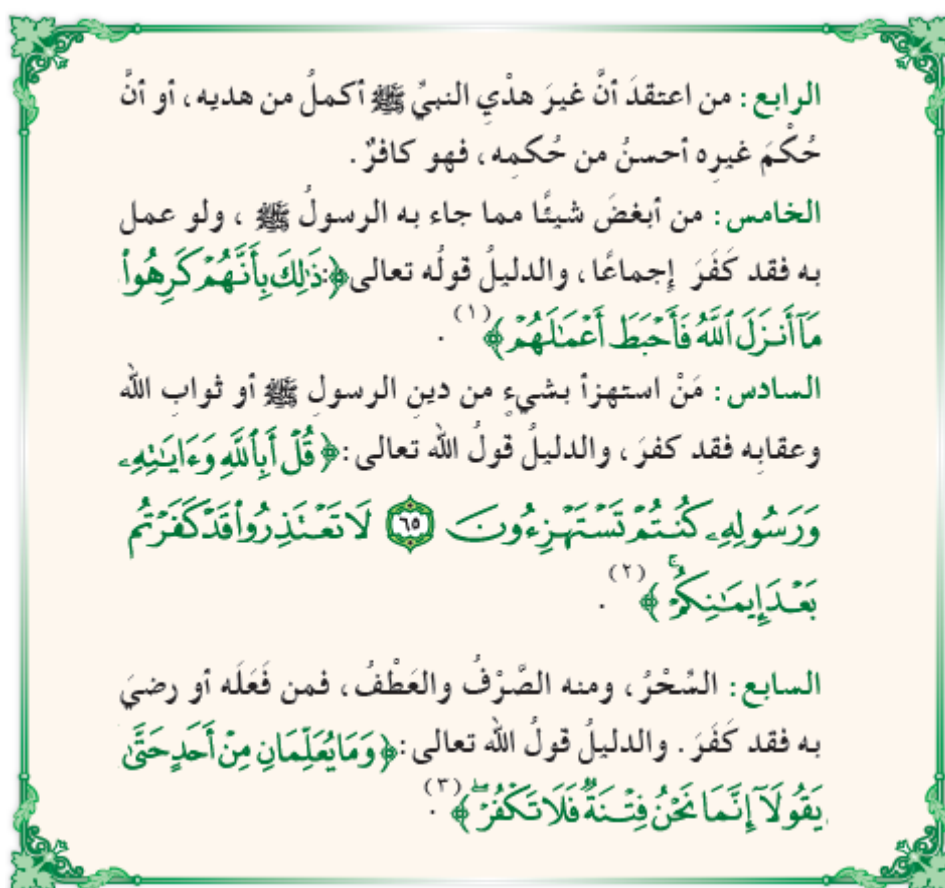 الرابع: من اعتقدَ أنَّ غيرَ هدْيِ النبيِّ ﷺ أكملُ من هديه، أو أنَّ
حُكْمَ غيرِه أحسنُ من حُكمِه، فهو كافرٌ.
الخامس: من أبغضَ شيئًا مما جاء به الرسولُ ﷺ، ولو عمل
به فقد كَفَرَ إِجماعًا، والدليلُ قولُه تعالى: ﴿ذَٰلِكَ بِأَنَّهُمْ كَرِهُوا۟
مَآ أَنزَلَ ٱللَّهُ فَأَحْبَطَ أَعْمَـٰلَهُمْ﴾(١).
السادس: مَنْ استهزأ بشيءٍ من دينِ الرسولِ ﷺ أو ثوابِ الله
وعقابِه فقد كفرَ، والدليلُ قولُ الله تعالى: ﴿قُلْ أَبِٱللَّهِ وَءَايَـٰتِهِۦ
وَرَسُولِهِۦ كُنتُمْ تَسْتَهْزِءُونَ ٦٥ لَا تَعْتَذِرُوا۟ قَدْ كَفَرْتُم
بَعْدَ إِيمَـٰنِكُمْ ۚ﴾(٢).
السابع: السِّحْرُ، ومنه الصَّرْفُ والعَطْفُ، فمن فَعَلَه أو رضيَ
به فقد كَفَرَ. والدليلُ قولُ الله تعالى: ﴿وَمَا يُعَلِّمَانِ مِنْ أَحَدٍ حَتَّىٰ
يَقُولَآ إِنَّمَا نَحْنُ فِتْنَةٌ فَلَا تَكْفُرْ ۖ﴾(٣).